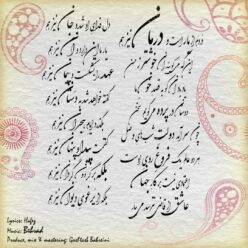 دردم از یار است و درمان نیز هم دل فدای او شد و جان نیز هم
این که می‌گویند آن خوشتر ز حسن یار ما این دارد و آن نیز هم
یاد باد آن کو به قصد خون ما عهد را بشکست و پیمان نیز هم
دوستان در پرده می‌گویم سخن گفته خواهد شد به دستان نیز هم
چون سرآمد دولت شبهای وصل بگذرد ایام هجران نیز هم
هر دو عالم یک فروغ روی اوست گفتمت پیدا و پنهان نیز هم
اعتمادی نیست بر کار جهان بلکه بر گردون گردان نیز هم
عاشق از قاضی نترسد می بیار بلکه از یرغوی دیوان نیز هم
Lyrics: Hafiz
Music: Behrad
Produce, mix & mastering: